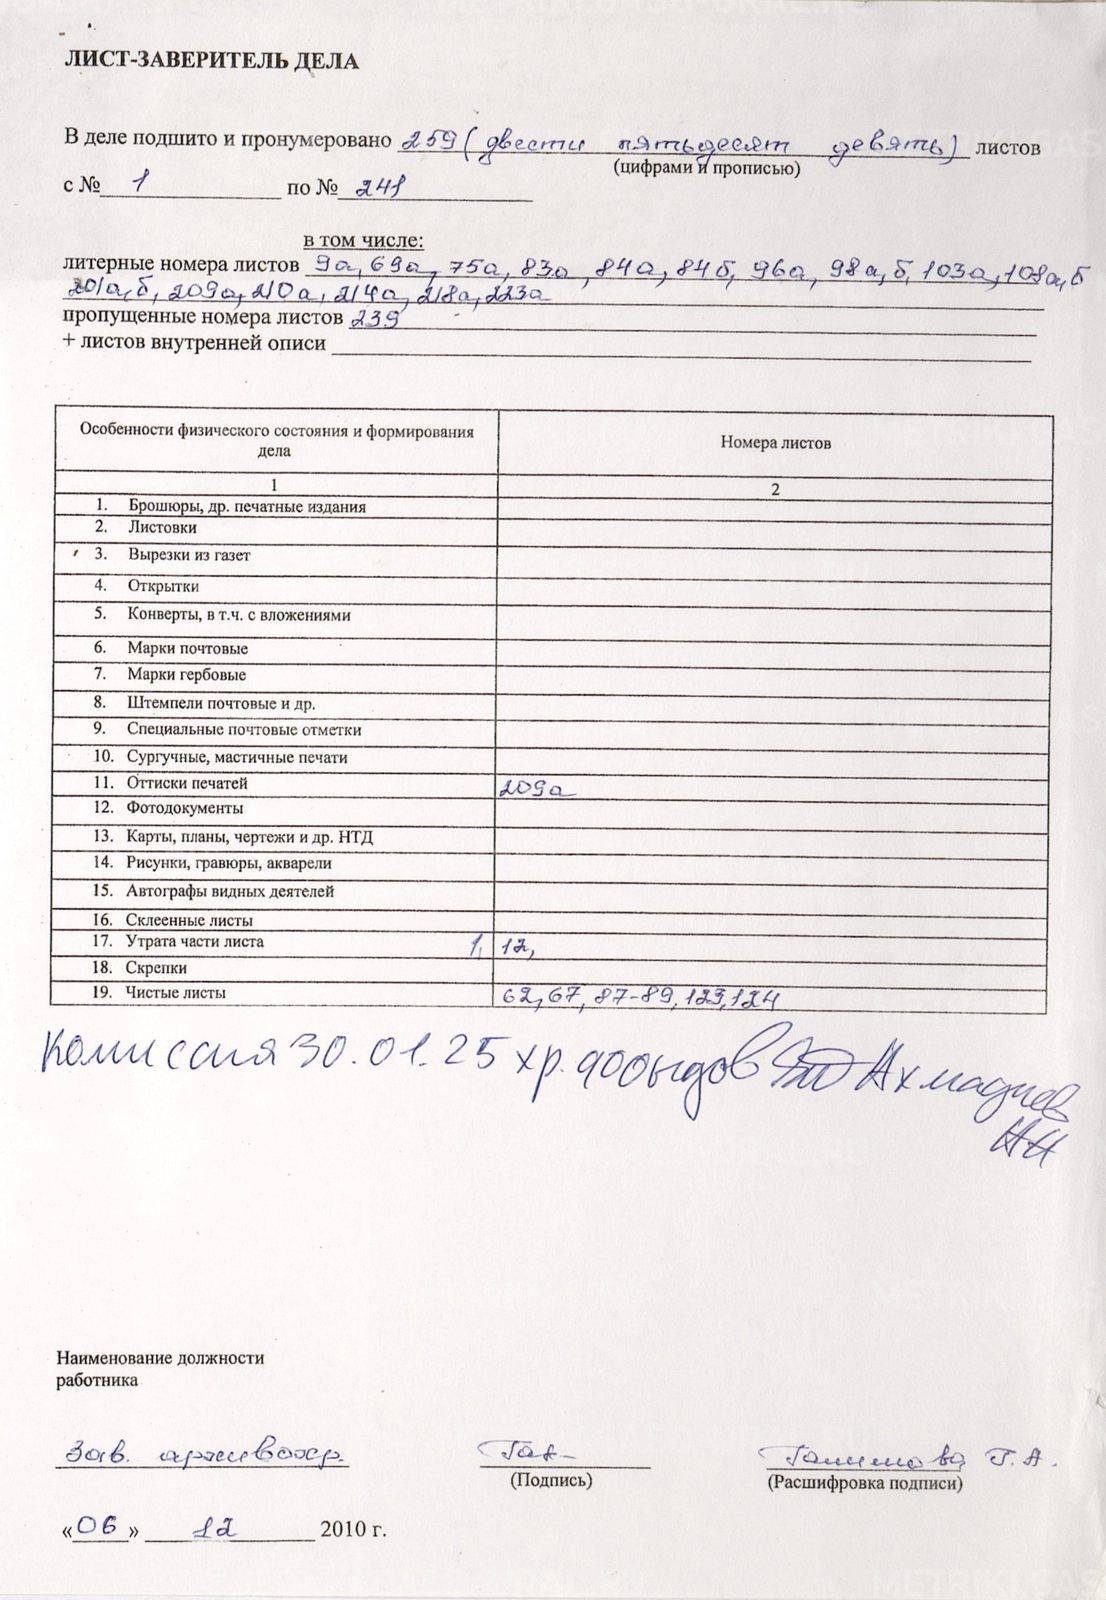 ЛИСТ-ЗАВЕРИТЕЛЬ ДЕЛА
В деле подшито и пронумеровано 259 (двести пятьдесят девять) листов
(цифрами и прописью)
с № 1 по № 241
в том числе:
литерные номера листов 9а, 69а, 75а, 83а, 84а, 84б, 96а, 98а, б, 103а, 108а, б
201а, б, 209а, 210а, 214а, 218а, 223а
пропущенные номера листов 239
+ листов внутренней описи
Особенности физического состояния и формирования дела Номера листов
1 2
1. Брошюры, др. печатные издания
2. Листовки
3. Вырезки из газет
4. Открытки
5. Конверты, в т.ч. с вложениями
6. Марки почтовые
7. Марки гербовые
8. Штемпели почтовые и др.
9. Специальные почтовые отметки
10. Сургучные, мастичные печати
11. Оттиски печатей 209а
12. Фотодокументы
13. Карты, планы, чертежи и др. НТД
14. Рисунки, гравюры, акварели
15. Автографы видных деятелей
16. Склеенные листы
17. Утрата части листа 1, 12,
18. Скрепки
19. Чистые листы 62, 67, 87-89, 123, 124
Комиссия 30.01.25 хр. Ахмадиев
Наименование должности
работника
Зав. архивохр. Гал- Галимова Г.А.
(Подпись) (Расшифровка подписи)
«06» 12 2010 г.